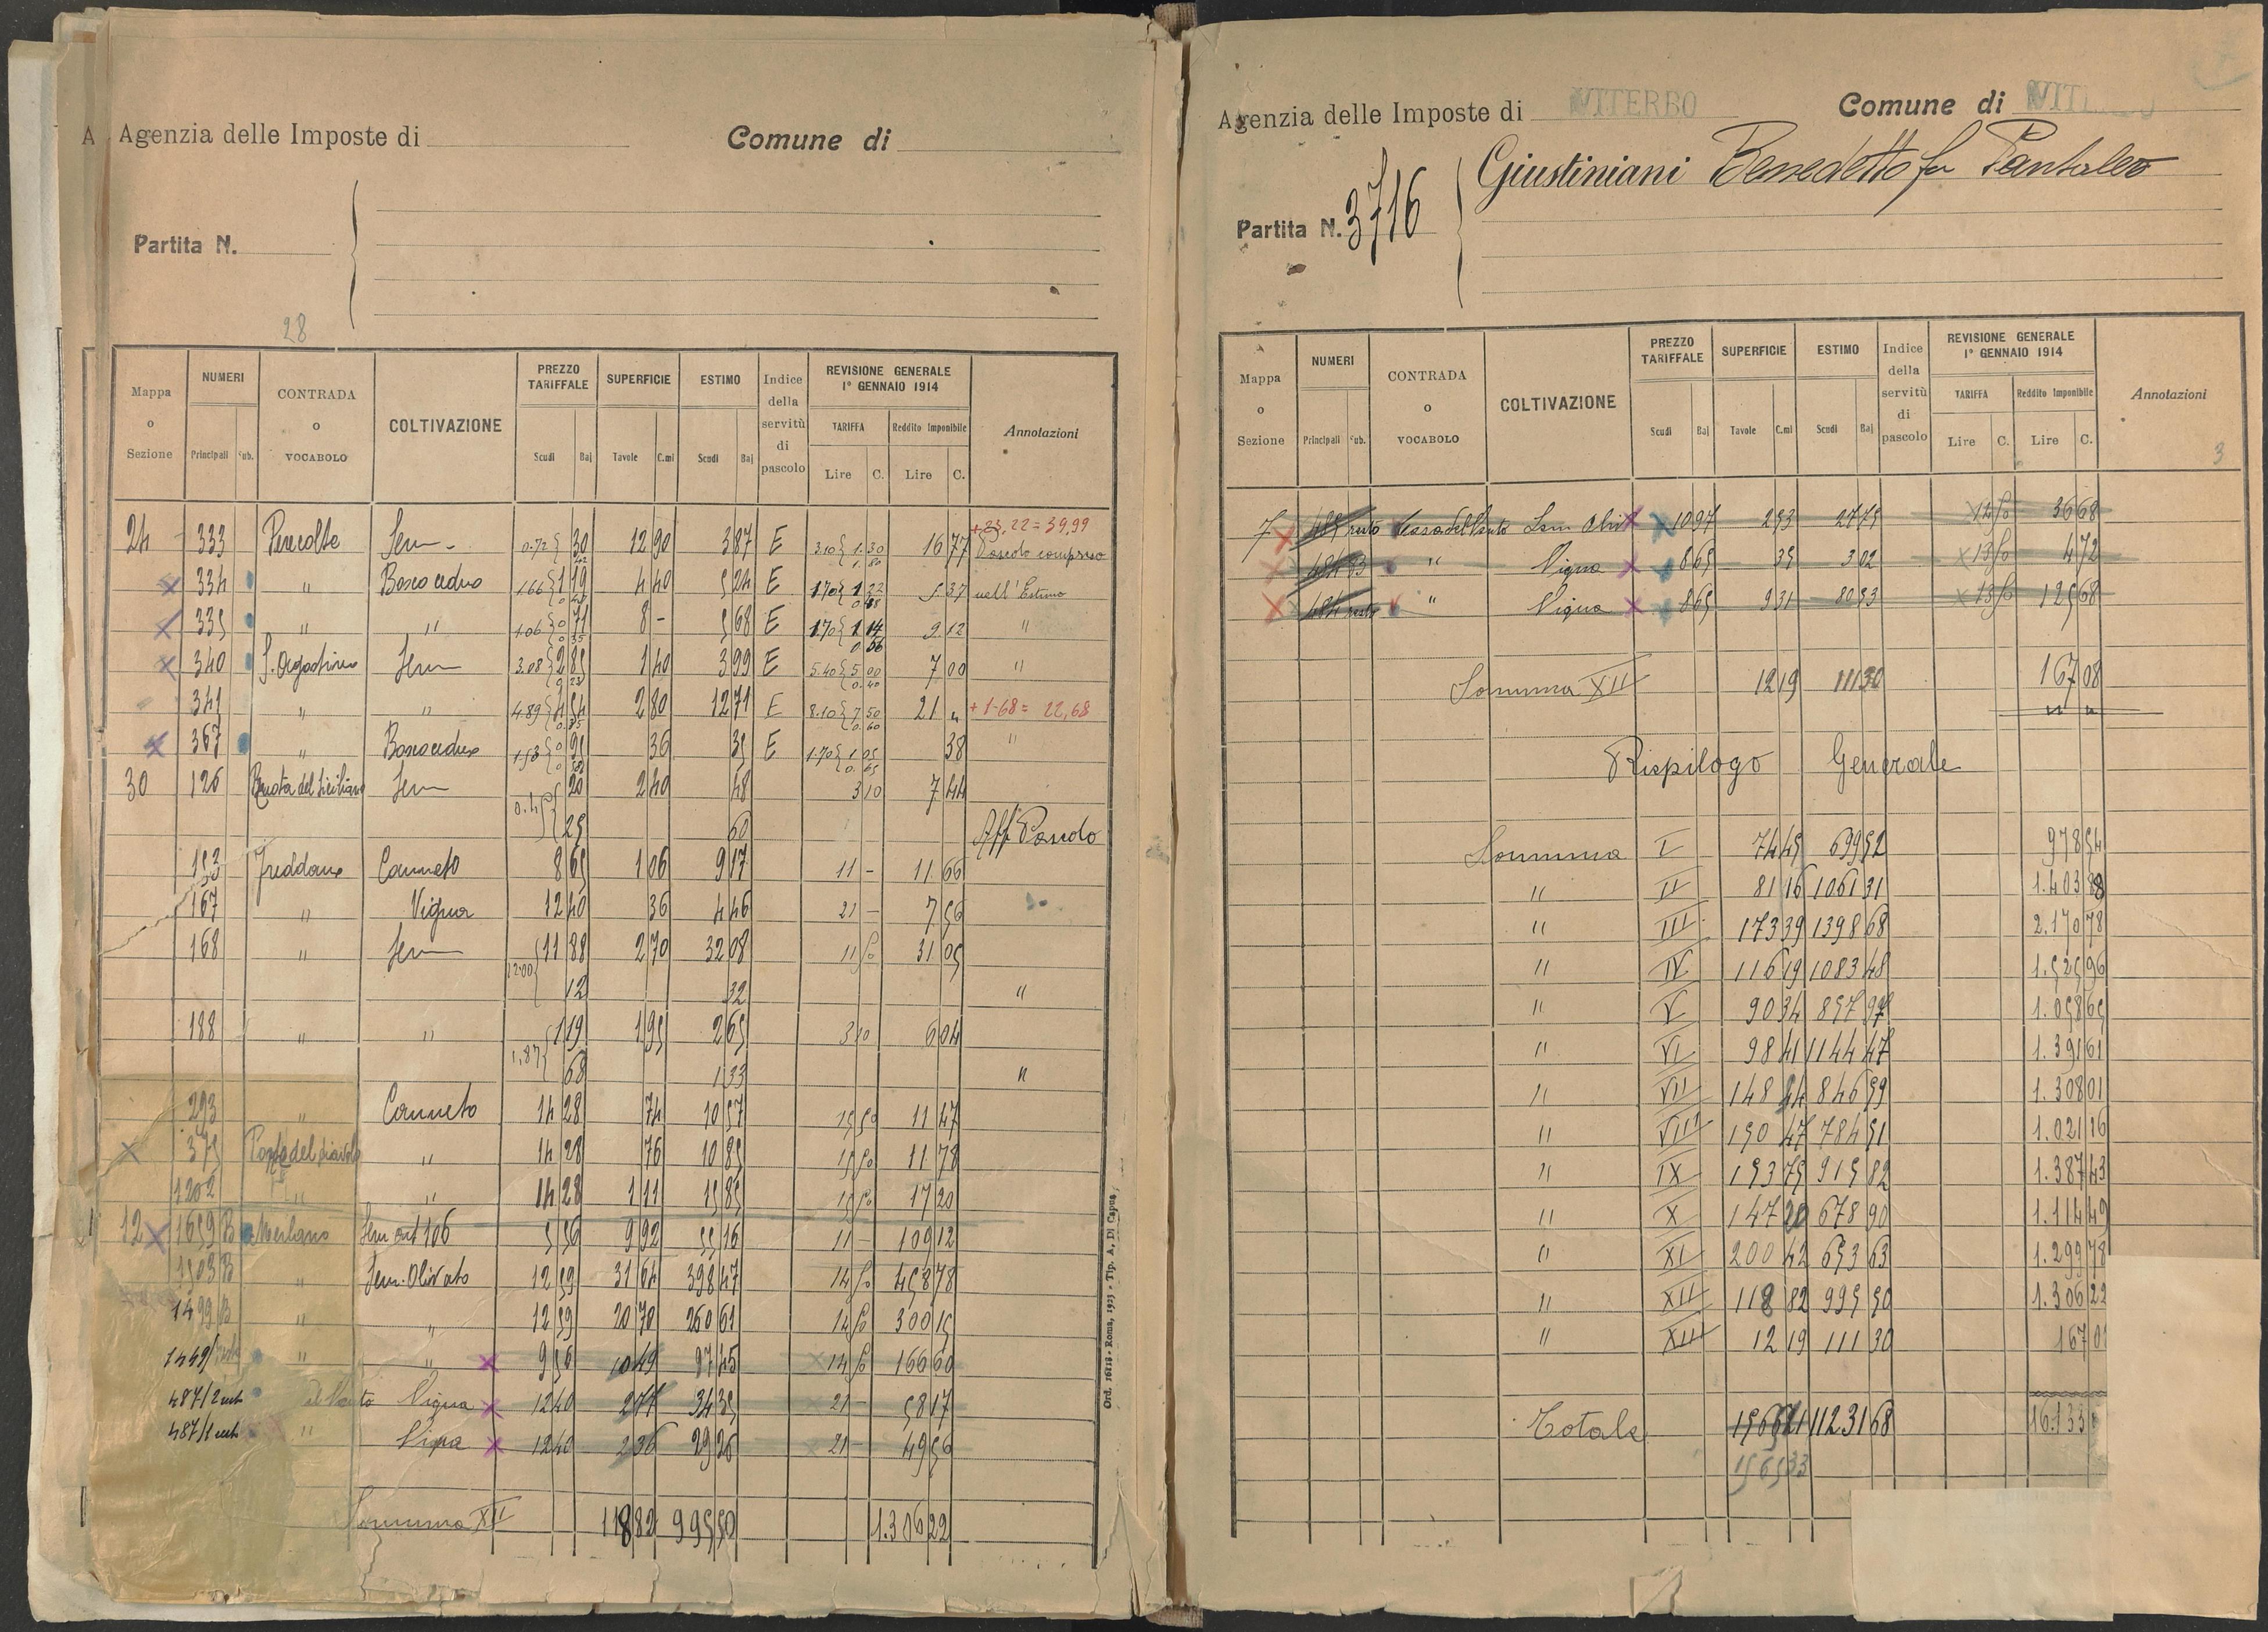 Agenzia delle Imposte di
Comune di
Partita N.
28
Mappa o Sezione | NUMERI Principali Sub. | CONTRADA O VOCABOLO | COLTIVAZIONE | PREZZO TARIFFALE Scudi Baj | SUPERFICIE Tavole C.mi | ESTIMO Scudi Baj | Indice della servitù di pascolo | REVISIONE GENERALE 1° GENNAIO 1914 TARIFFA Lire C. Reddito Imponibile Lire C. | Annotazioni
+ 23,22 = 39,99
24 333 Sem 0.72 30 12 90 3 87 E 3.10 1.30 16 77 Pascolo compreso
334 " Bosco ceduo 1.66 1 19 4 40 5 24 E 1.70 1 22 5 37 nell'Estimo
335 " " 1.06 0 71 8 - 5 68 E 1.70 1 14 9 12 "
340 S. Agostino Sem 3.08 2 85 1 40 3 99 E 5.40 5 00 7 00 "
341 " " 4.89 4 54 2 80 12 71 E 8.10 7 50 21 " + 1.68 = 22,68
367 " Bosco ceduo 1.53 0 95 36 35 E 1.70 1 05 38 "
30 126 Sem 20 2 40 48 3 10 7 44
25 60 Aff Pascolo
153 Freddano Canneto 8 65 1 06 9 17 11 - 11 66
167 " Vigna 12 40 36 4 46 21 - 7 56
168 " Sem 11 88 2 70 32 08 11 50 31 05
12.00 12 32 "
188 " " 1 19 1 95 2 65 3 10 6 04
1,87 68 1 33 "
293 " Canneto 14 28 74 10 57 15 50 11 47
375 del diavolo " 14 28 76 10 85 15 50 11 78
1202 " " 14 28 1 11 15 85 15 50 17 20
12 1659 B Merlano Sem 5 56 9 92 55 16 11 - 109 12
1503 B " Sem. Olivato 12 59 31 64 398 47 14 50 458 78
1499 B " " 12 59 20 70 260 61 14 50 300 15
1449/ " " 9 56 10 49 97 45 14 50 166 60
487/2 Vigna 12 40 2 77 34 35 21 - 58 17
487/1 " Vigna 12 40 2 36 29 26 21 - 49 56
Somma XII 118 82 995 50 1.306 22
Ord. 16818 - Roma, 1923 - Tip. A. Di Capua
Agenzia delle Imposte di VITERBO
Comune di
Giustiniani Benedetto fu Pantaleo
Partita N. 3716
Mappa o Sezione | NUMERI Principali Sub. | CONTRADA O VOCABOLO | COLTIVAZIONE | PREZZO TARIFFALE Scudi Baj | SUPERFICIE Tavole C.mi | ESTIMO Scudi Baj | Indice della servitù di pascolo | REVISIONE GENERALE 1° GENNAIO 1914 TARIFFA Lire C. Reddito Imponibile Lire C. | Annotazioni
3
7 Sem Oliv 10 97 2 53 27 75 12 50 36 68
" Vigna 8 65 35 3 02 13 50 4 72
" Vigna 8 65 9 31 80 53 13 50 125 68
Somma XII 12 19 111 30 167 08
" "
Riepilogo Generale
Somma I 74 45 699 52 978 54
" II 81 16 1061 31 1.403 88
" III 173 39 1398 68 2.170 78
" IV 116 19 1083 48 1.525 96
" V 90 34 857 97 1.058 65
" VI 98 41 1144 47 1.391 61
" VII 148 44 846 99 1.308 01
" VIII 150 47 784 51 1.021 16
" IX 193 75 915 82 1.387 43
" X 147 20 678 90 1.114 49
" XI 200 42 653 63 1.299 78
" XII 118 82 995 50 1.306 22
" XIII 12 19 111 30 167 0
Totale 11231 68 16.133
1565 33